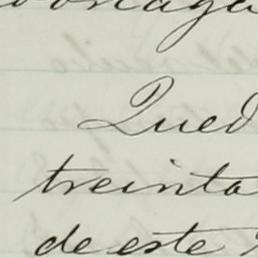 Qued
treinta
de este